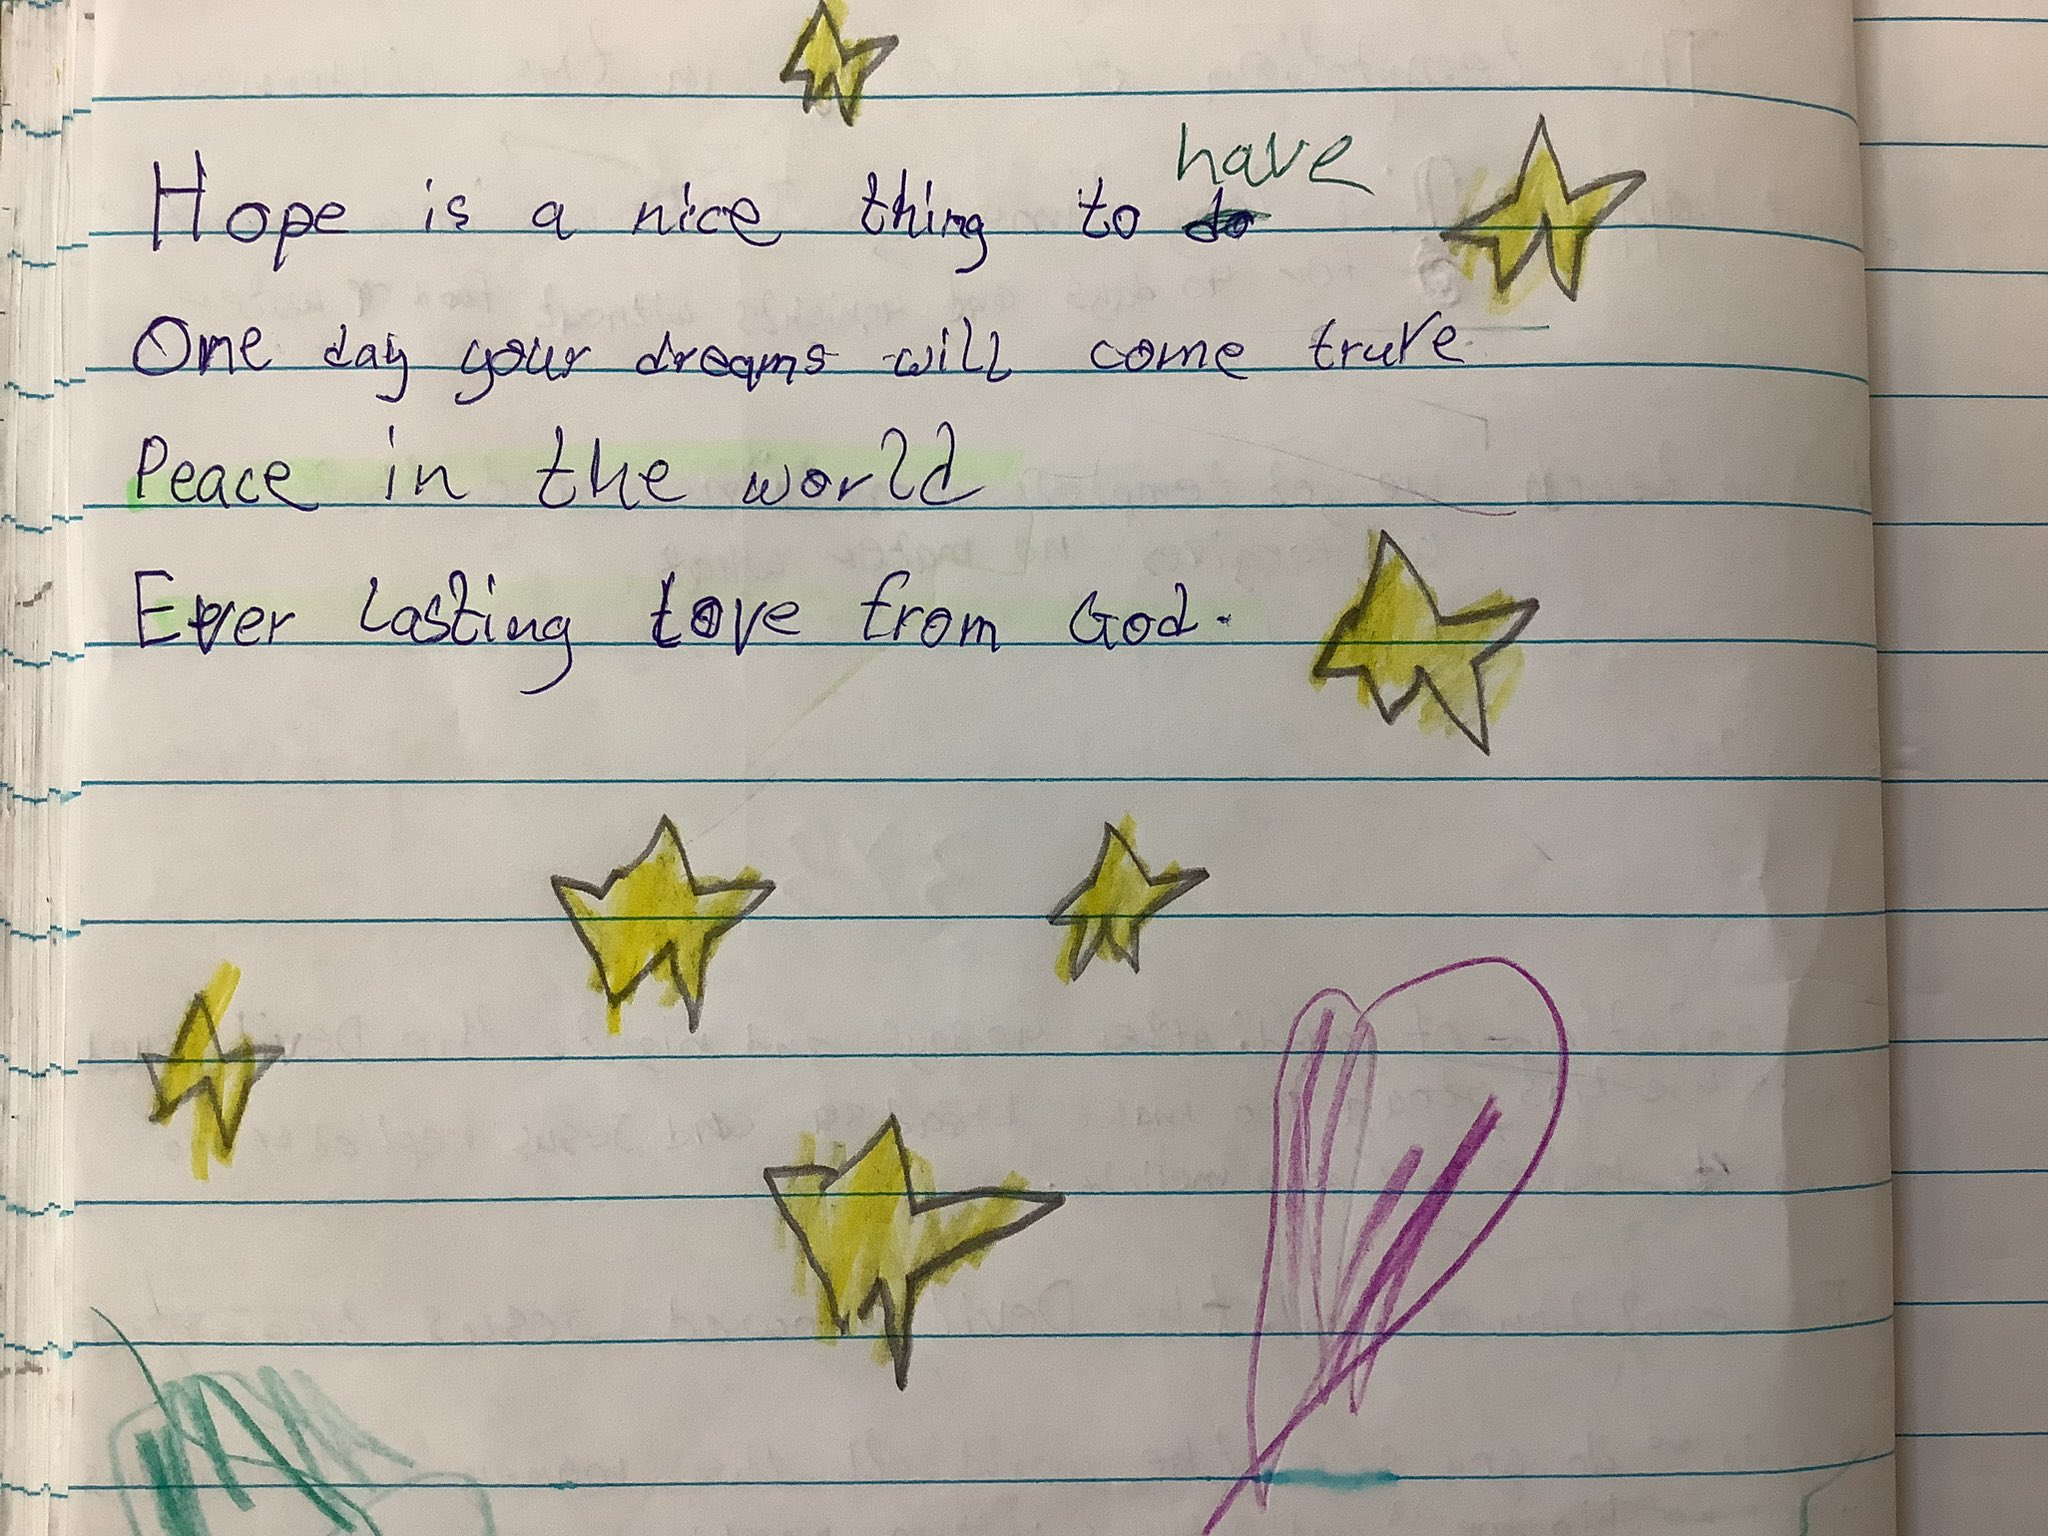 Hope is a nice thing to have
One day your dreams will come trure
Peace in the world
Ever lasting love from God.